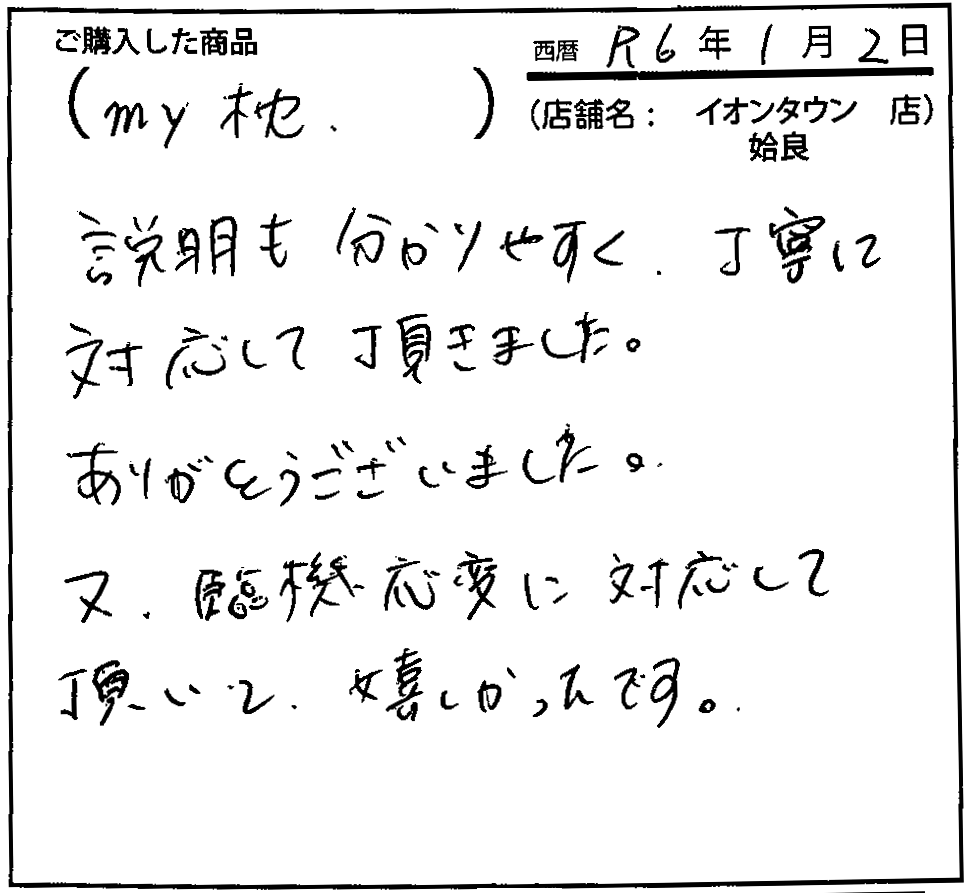 ご購入した商品
西暦 R6年1月2日
(my 枕. )
(店舗名: イオンタウン 店)
姶良
説明も分かりやすく、丁寧に
対応して頂きました。
ありがとうございました。
又、臨機応変に対応して
頂いて、嬉しかったです。